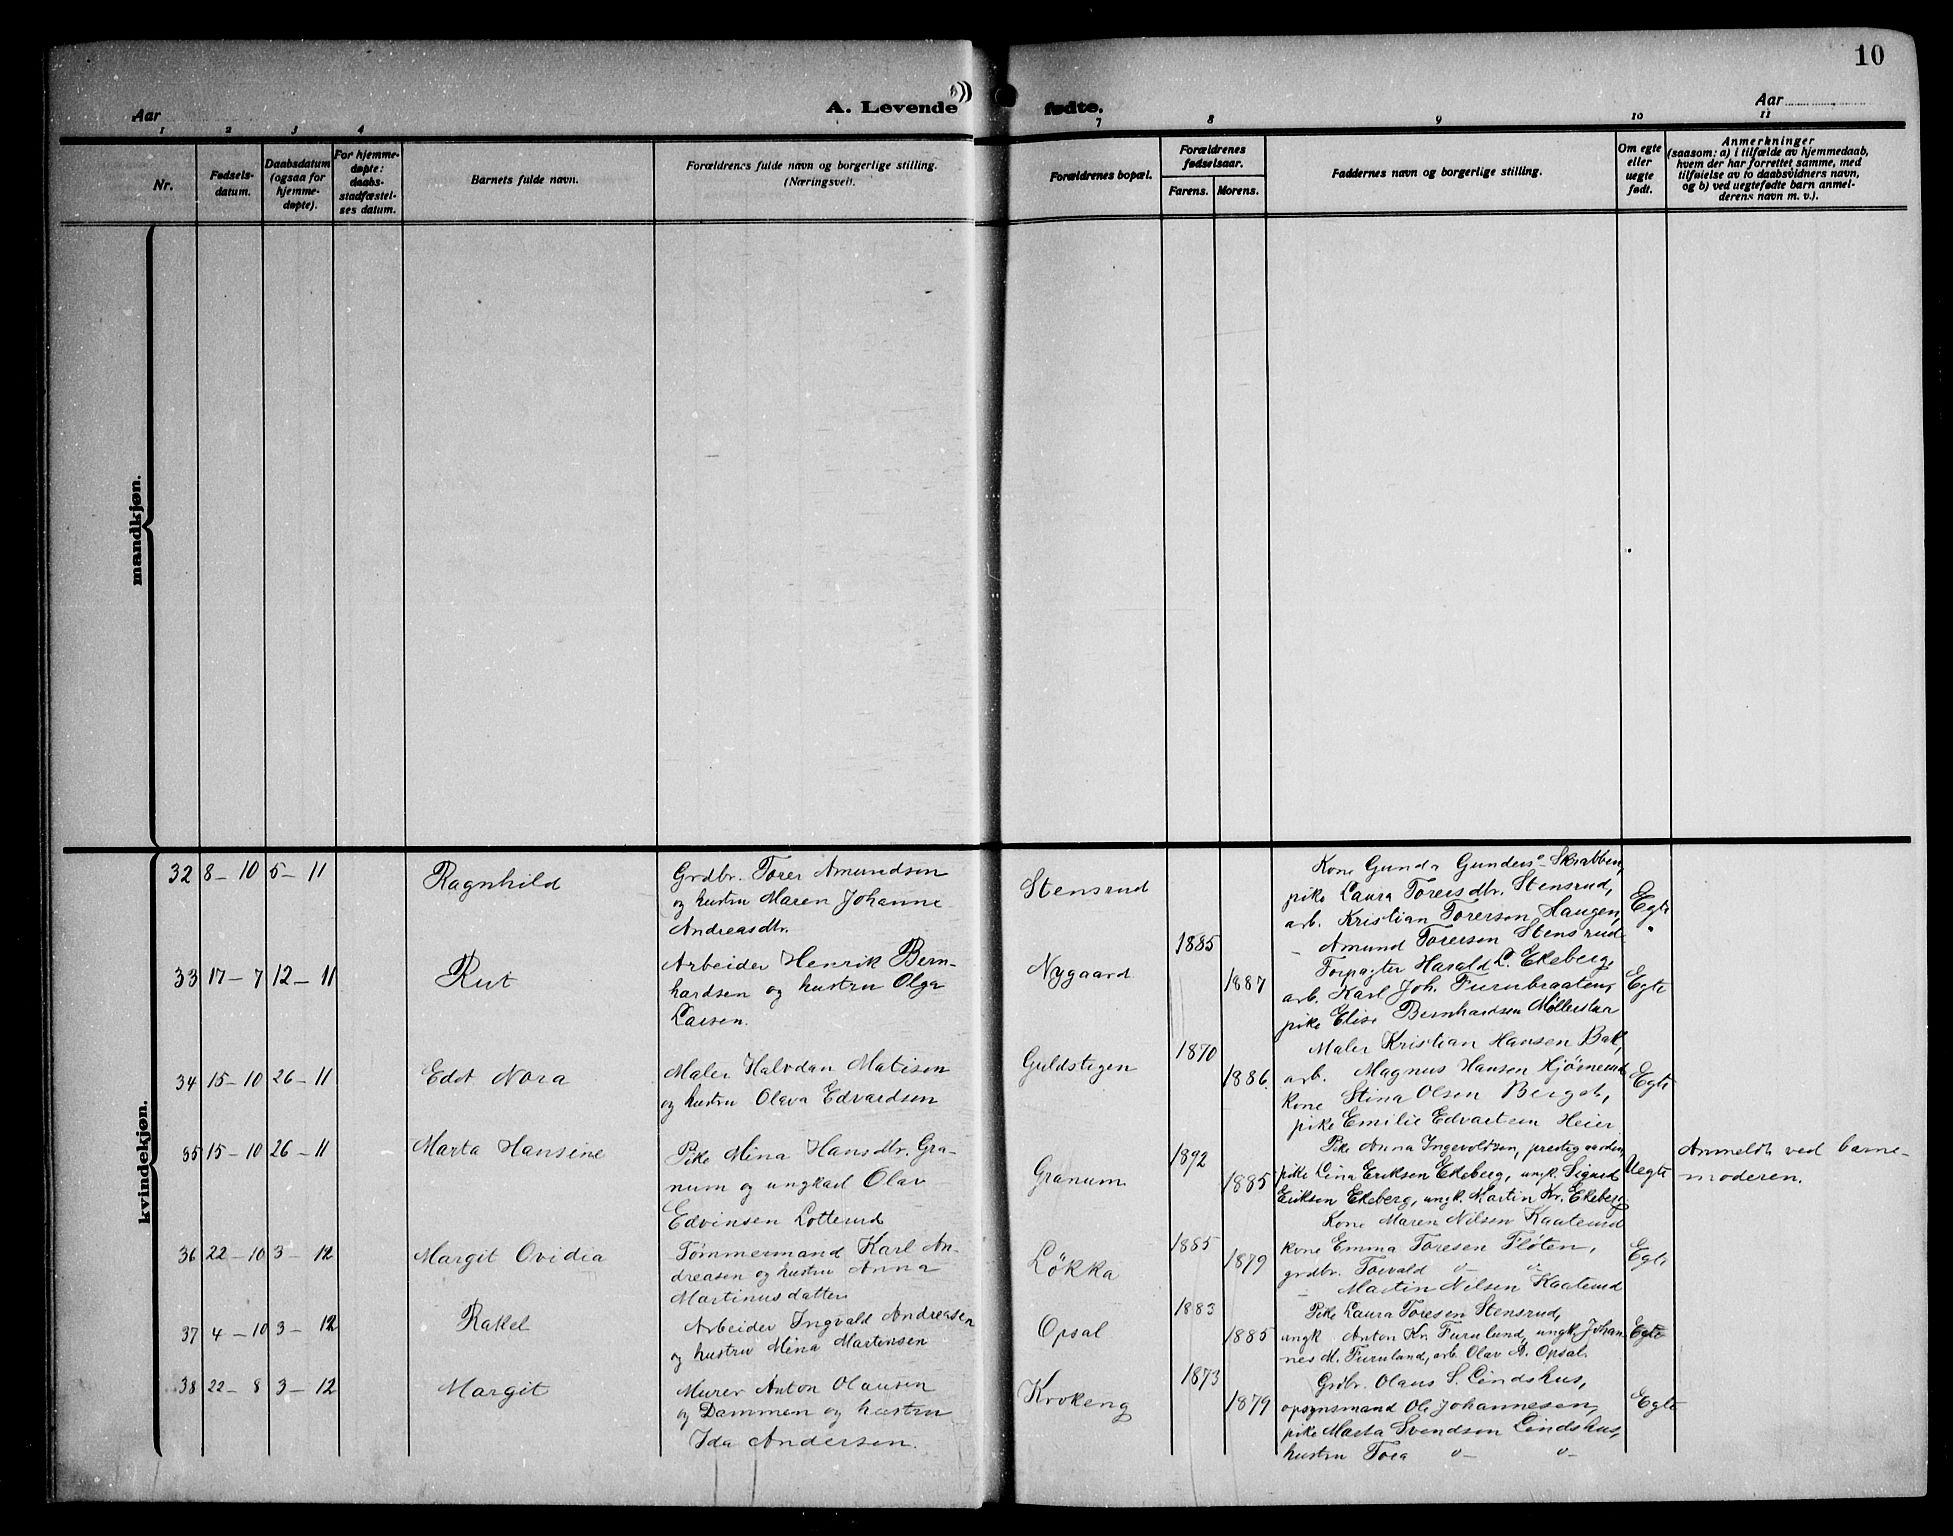 10
A. Levende fødte.
Aar
Aar
1 2 3 4 7 8 9 10 11
Nr.
Fødsels-
datum.
Daabsdatum
(ogsaa for
hjemme-
døpte).
For hjemme-
døpte:
daabs-
stadfæstel-
ses datum.
Barnets fulde navn.
Forældrenes fulde navn og borgerlige stilling.
(Næringsvei).
Forældrenes bopæl.
Forældrenes
fødselsaar.
Farens. Morens.
Faddernes navn og borgerlige stilling.
Om egte
eller
uegte
født.
Anmerkninger
(saasom: a) i tilfælde av hjemmedaab,
hvem der har forrettet samme, med
tilføielse av to daabsvidners navn,
og b) ved uegtefødte barn anmel-
derens navn m. v.).
mandkjøn.
kvindekjøn.
32 8–10 5–11
Ragnhild
Grdbr. Torer Amundsen
og hustru Maren Johanne
Andreasdtr.
Stensrud
Kone Gunda Gunders. Skrabben,
pike Laura Torersdtr. Stensrud,
arb. Kristian Torersen Haugen,
– Amund Torersen Stensrud
Egte
33 17–7 12–11
Rut
Arbeider Henrik Bern-
hardsen og hustru Olga
Larsen.
Nygaard
1885
1887
Forpagter Harald L. Ekeberg,
arb. Karl Joh. Furubraaten,
pike Elise Bernhardsen Møllerstua
Egte
34 15–10 26–11
Edit Nora
Maler Halvdan Matisen
og hustru Olava Edvardsen
Guldstegen
1870
1886.
Maler Kristian Hansen Bak,
arb. Magnus Hansen Hjørnerud
kone Stina Olsen Bergst.,
pike Emilie Edvartsen Heier
Egte
35 15–10 26–11
Marta Hansine
Pike Mina Hansdtr. Gra-
num og ungkarl Olav
Edvinsen Lotterud
Granum
1892
1885
Pike Anna Ingevoldsen, prestegaarden,
pike Lina Eriksen Ekeberg, ungk. Sigurd
Eriksen Ekeberg, ungk. Martin Kr. Ekeberg
Uegte
Anmeldt ved barne-
moderen.
36 22–10 3–12
Margit Ovidia
Tømmermand Karl An-
dreasen og hustru Anna
Martinusdatter
Løkka
1885
1879
Kone Maren Nilsen Kaaterud
kone Emma Toresen Fløten,
grdbr. Torvald " "
– Martin Nilsen Kaaterud
Egte
37 4–10 3–12
Rakel
Arbeider Ingvald Andreasen
og hustru Mina Martensen
Opsal
1883
1885
Pike Laura Toresen Stensrud,
ungk. Anton Kr. Furulund, ungk. Johan-
nes M. Furuland, arb. Olav A. Opsal.
Egte
38 22–8 3–12
Margit
Murer Anton Olausen
og Dammen og hustru
Ida Andersen.
Krokeng
1873
1879
Grdbr. Olaus S. Lindshus,
opsynsmand Ole Johannesen,
pike Marta Svendsen Lindshus,
hustru Tora " "
Egte